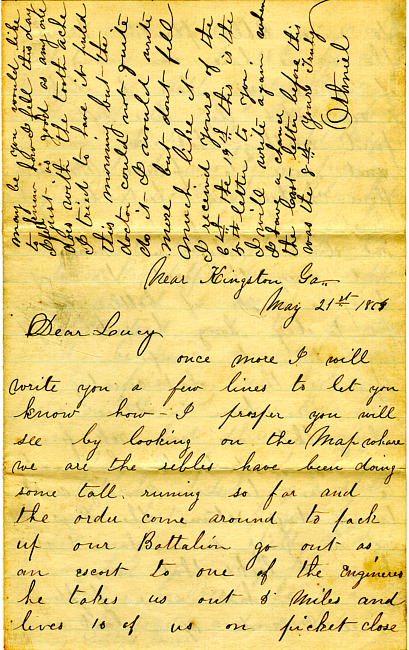 may be you would like
to know how I fell this day
as good as any one
with the tooth ache
I tried to have it puld
this morning but the
doctor could not quite
do it I would write
more but dont fell
much like it
I received yours of the
6th the 19th this is the
5th letter to you
I will write again when
I hav a chance
the last letter before this
was the 8th Yours Truly
Othniel
Near Kingston Ga
May 21st
Dear Lucy
once more I will
write you a few lines to let you
know how I prosper you will
see by looking on the Map whare
we are the rebles have been doing
some tall runing so far and
the order come around to pack
up our Battalion go out as
an escort to one of the Engineres
he takes us out 8 Miles and
leves 10 of us on picket close